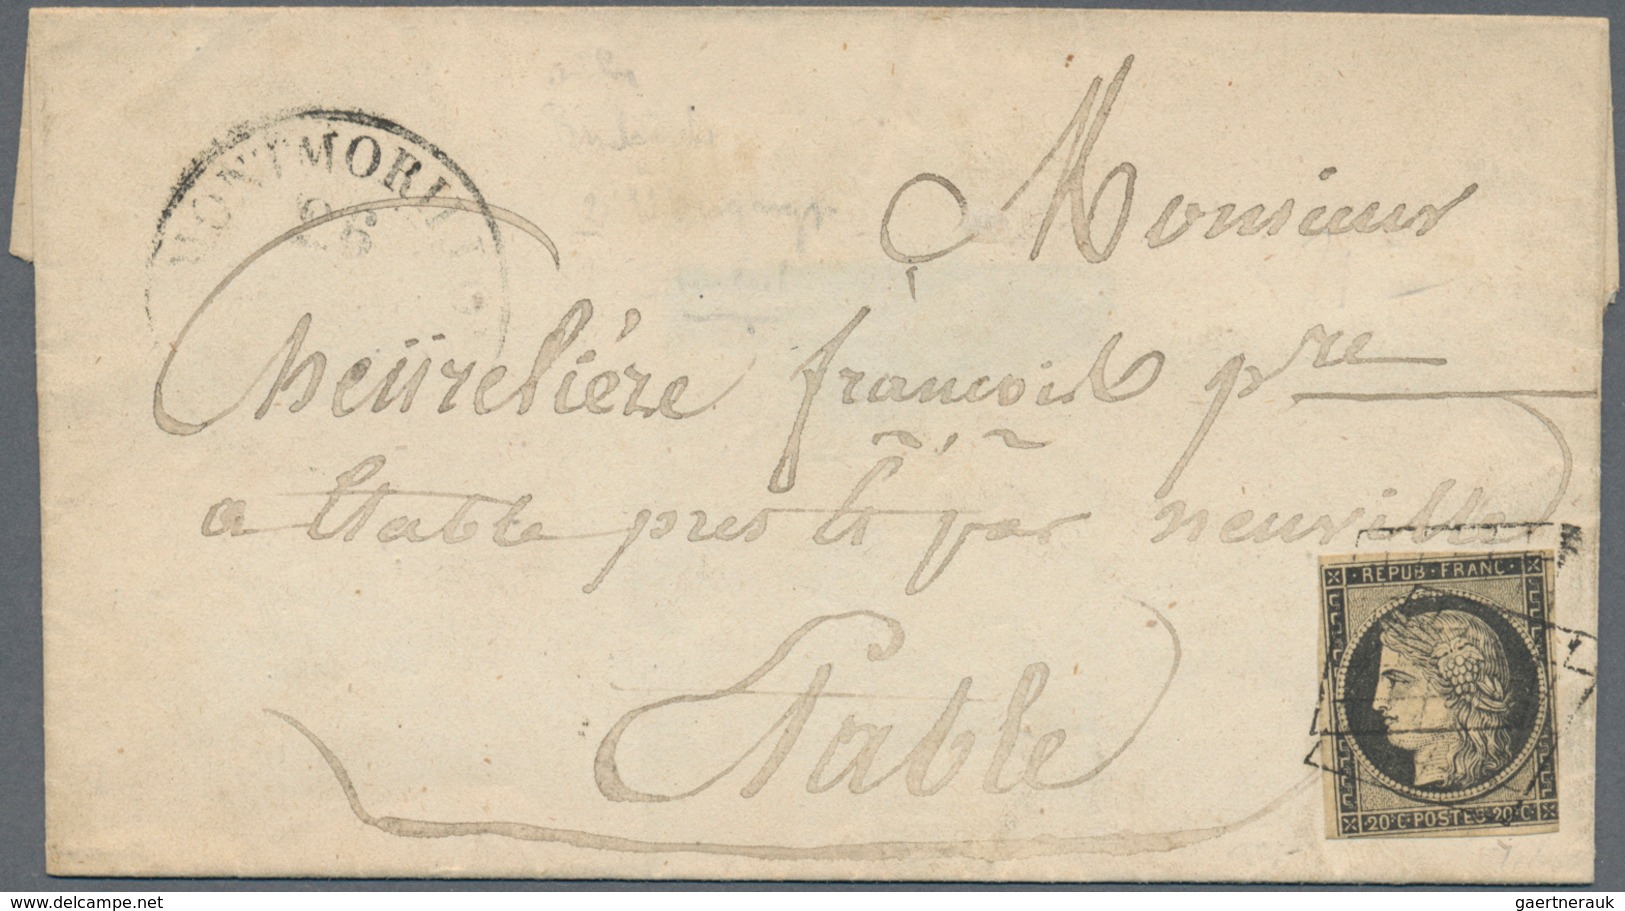 MONTMORILLO
26
Monsieur
heüreliére françois pre
a Étable près L par neuville
Étable
REPUB·FRANC·
20·C·POSTES·20·C·
delcampe.net
gaertnerauk